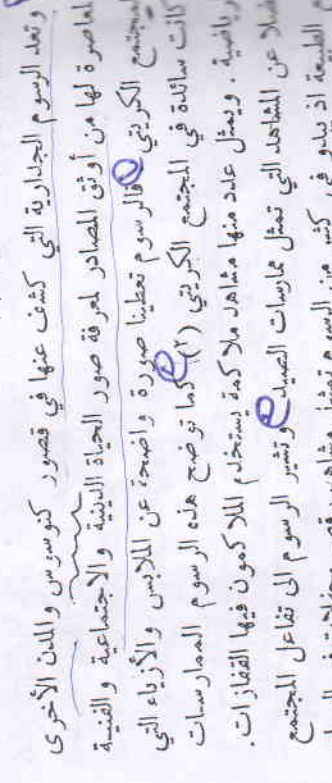 وتعد الرسوم الجدارية التي كشف عنها في قصور كنوسوس والمدن الأخرى
لمعاصرة لها من أوثق المصادر لمعرفة صور الحياة الدينية والاجتماعية والفنية
لمجتمع الكريتي فالرسوم تعطينا صورة واضحة عن الملابس والأزياء التي
كانت سائدة في المجتمع الكريتي (٢) كما توضح هذه الرسوم الممارسات
رياضية . ويمثل عدد منها مشاهد ملاكمة يستخدم الملاكمون فيها القفازات .
ضلا عن المشاهد التي تمثل ممارسات الصيد وتشير الرسوم الى تفاعل المجتمع
الطبيعة اذ يبدو في كثير من الرسوم